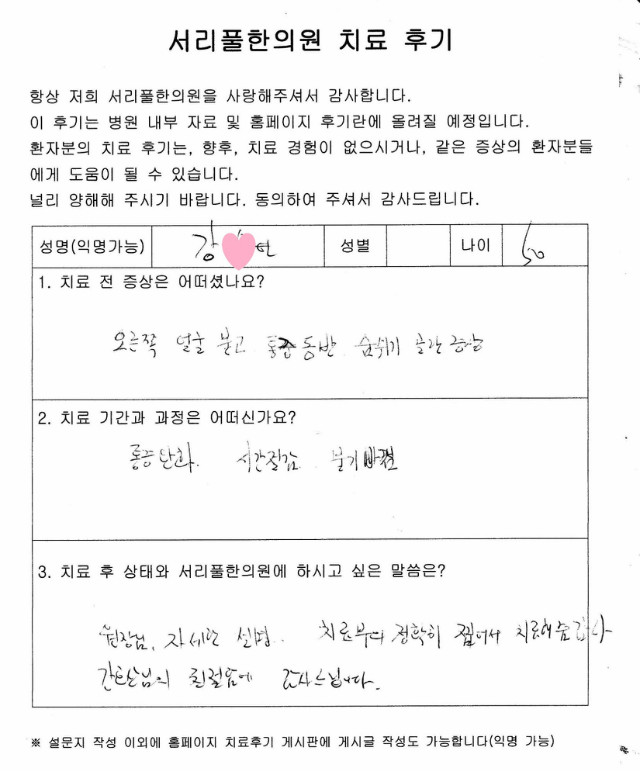 서리풀한의원 치료 후기
항상 저희 서리풀한의원을 사랑해주셔서 감사합니다.
이 후기는 병원 내부 자료 및 홈페이지 후기란에 올려질 예정입니다.
환자분의 치료 후기는, 향후, 치료 경험이 없으시거나, 같은 증상의 환자분들
에게 도움이 될 수 있습니다.
널리 양해해 주시기 바랍니다. 동의하여 주셔서 감사드립니다.
성명(익명가능) 강 성별 나이 50
1. 치료 전 증상은 어떠셨나요?
오른쪽 얼굴 붓고 통증 동반 숨쉬기 곤란
2. 치료 기간과 과정은 어떠신가요?
통증 완화. 시간절감 붓기
3. 치료 후 상태와 서리풀한의원에 하시고 싶은 말씀은?
원장님, 자세한 설명. 치료부위 정확히 찝어서 치료해줌 감사
간호사님의 친절함에 감사느낍니다.
※ 설문지 작성 이외에 홈페이지 치료후기 게시판에 게시글 작성도 가능합니다(익명 가능)